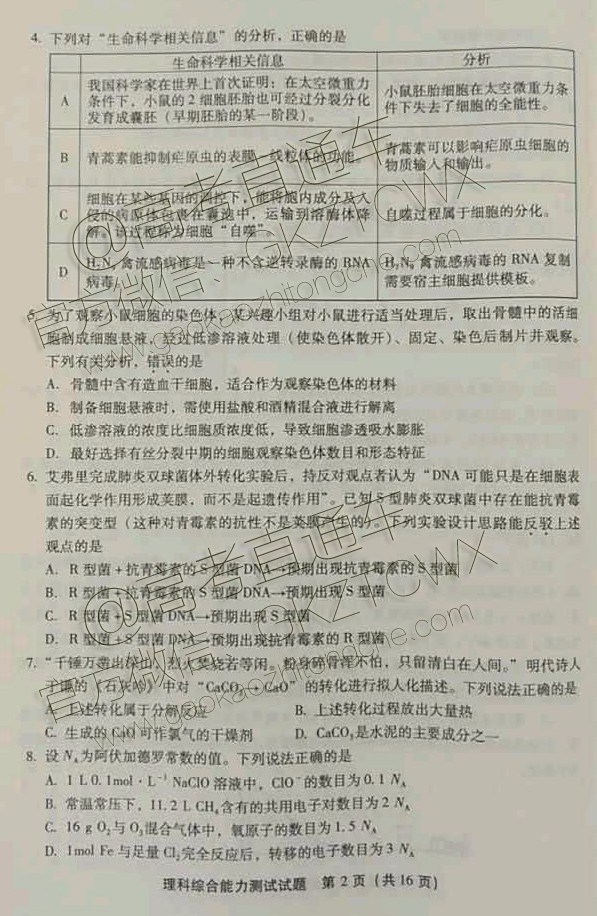 4. 下列对“生命科学相关信息”的分析，正确的是
生命科学相关信息 分析
A 我国科学家在世界上首次证明：在太空微重力条件下，小鼠的2细胞胚胎也可经过分裂分化发育成囊胚（早期胚胎的某一阶段）。 小鼠胚胎细胞在太空微重力条件下失去了细胞的全能性。
B 青蒿素能抑制疟原虫的表膜、线粒体的功能。 青蒿素可以影响疟原虫细胞的物质输入和输出。
C 细胞在某些基因的调控下，能将胞内成分及入侵的病原体包裹在囊泡中，运输到溶酶体降解。该过程称为细胞“自噬”。 自噬过程属于细胞的分化。
D H₇N₉禽流感病毒是一种不含逆转录酶的RNA病毒。 H₇N₉禽流感病毒的RNA复制需要宿主细胞提供模板。
5. 为了观察小鼠细胞的染色体，某兴趣小组对小鼠进行适当处理后，取出骨髓中的活细
胞制成细胞悬液，经过低渗溶液处理（使染色体散开）、固定、染色后制片并观察。
下列有关分析，错误的是
A. 骨髓中含有造血干细胞，适合作为观察染色体的材料
B. 制备细胞悬液时，需使用盐酸和酒精混合液进行解离
C. 低渗溶液的浓度比细胞质浓度低，导致细胞渗透吸水膨胀
D. 最好选择有丝分裂中期的细胞观察染色体数目和形态特征
6. 艾弗里完成肺炎双球菌体外转化实验后，持反对观点者认为“DNA可能只是在细胞表
面起化学作用形成荚膜，而不是起遗传作用”。已知S型肺炎双球菌中存在能抗青霉
素的突变型（这种对青霉素的抗性不是荚膜产生的）。下列实验设计思路能反驳上述
观点的是
A. R型菌＋抗青霉素的S型菌DNA→预期出现抗青霉素的S型菌
B. R型菌＋抗青霉素的S型菌DNA→预期出现S型菌
C. R型菌＋S型菌DNA→预期出现S型菌
D. R型菌＋S型菌DNA→预期出现抗青霉素的R型菌
7. “千锤万凿出深山，烈火焚烧若等闲。粉身碎骨浑不怕，只留清白在人间。”明代诗人
于谦的《石灰吟》中对“CaCO₃→CaO”的转化进行拟人化描述。下列说法正确的是
A. 上述转化属于分解反应 B. 上述转化过程放出大量热
C. 生成的CaO可作氯气的干燥剂 D. CaCO₃是水泥的主要成分之一
8. 设Nₐ为阿伏加德罗常数的值。下列说法正确的是
A. 1 L 0.1mol·L⁻¹ NaClO溶液中，ClO⁻的数目为0.1 Nₐ
B. 常温常压下，11.2 L CH₄含有的共用电子对数目为2 Nₐ
C. 16 g O₂与O₃混合气体中，氧原子的数目为1.5 Nₐ
D. 1mol Fe与足量Cl₂完全反应后，转移的电子数目为3 Nₐ
理科综合能力测试试题 第2页（共16页）
@高考直通车
官方微信：GKZTCWX
www.gaokaozhitongche.com
@高考直通车
官方微信：GKZTCWX
www.gaokaozhitongche.com